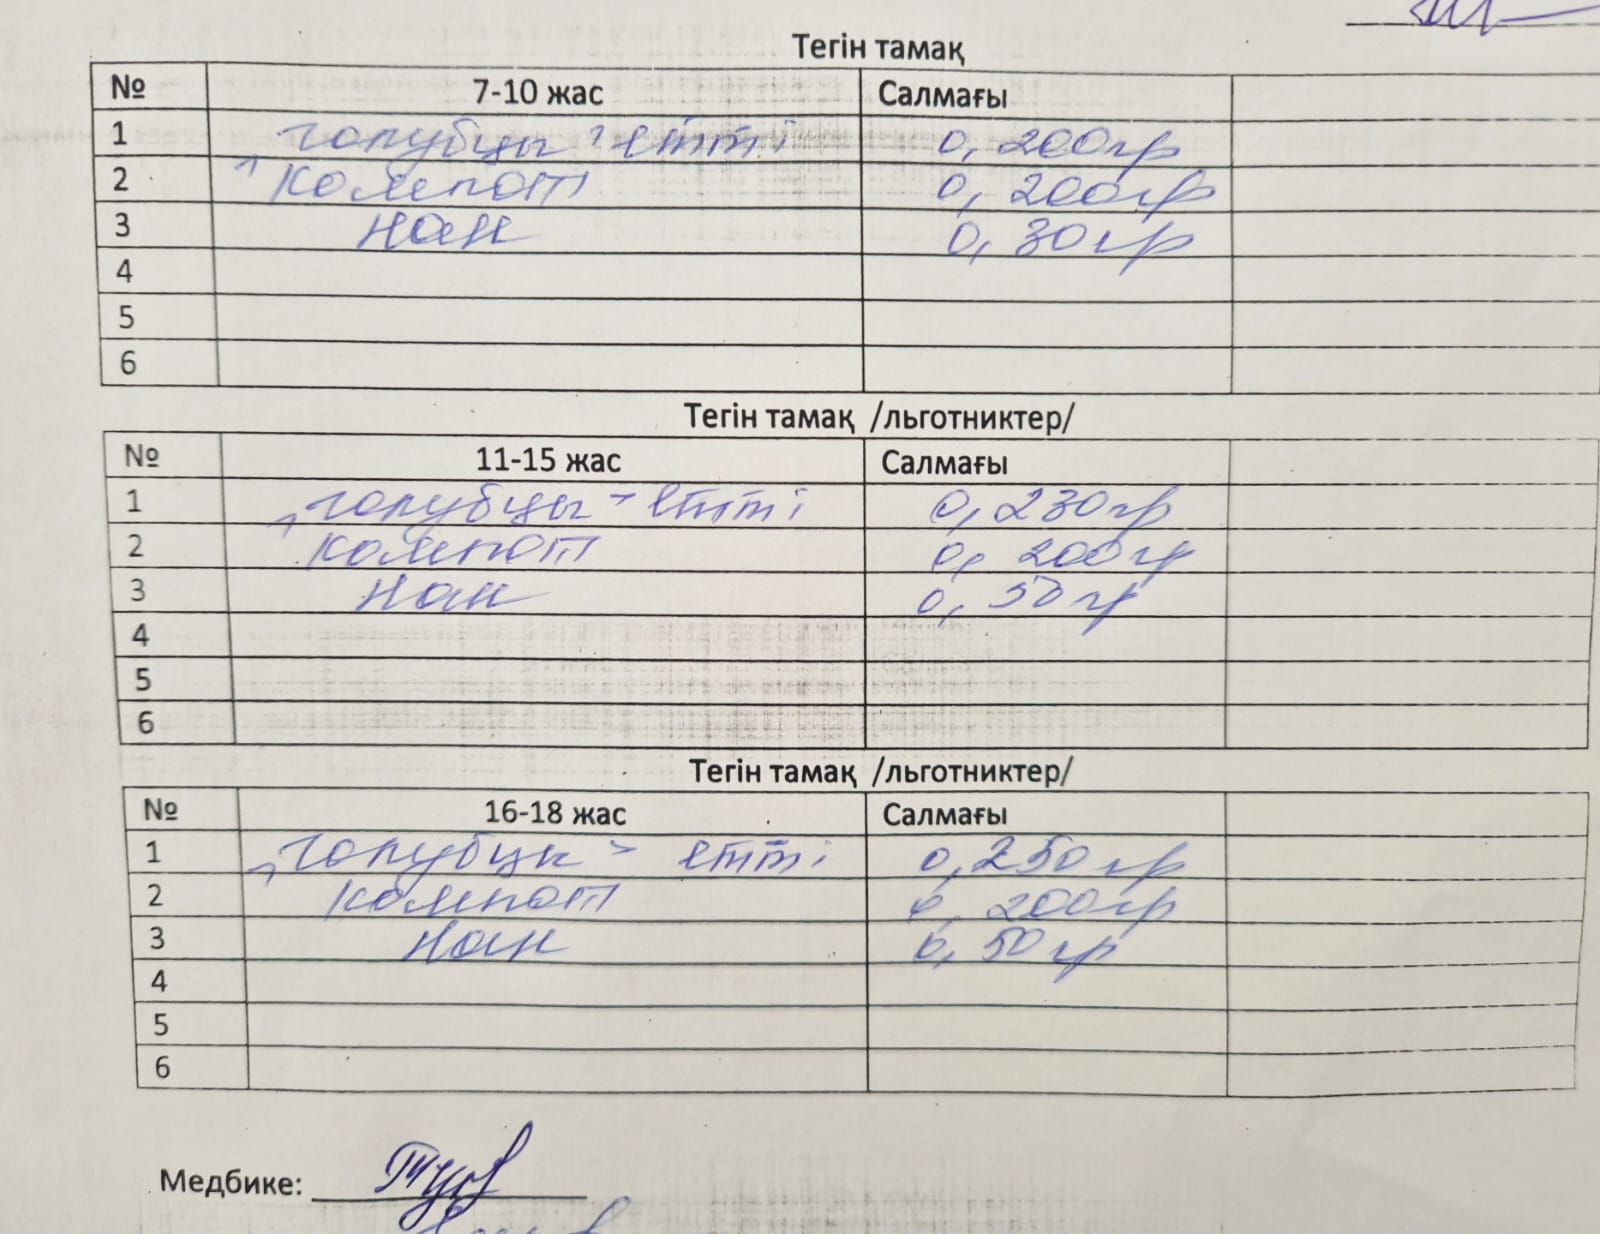 Тегін тамақ
№ 7-10 жас Салмағы
1 "голубцы" етті 0,200гр
2 Компот 0,200гр
3 Нан 0,30гр
4
5
6
Тегін тамақ /льготниктер/
№ 11-15 жас Салмағы
1 "голубцы" етті 0,230гр
2 Компот 0,200гр
3 Нан 0,50гр
4
5
6
Тегін тамақ /льготниктер/
№ 16-18 жас Салмағы
1 "голубцы" етті 0,250гр
2 Компот 0,200гр
3 Нан 0,50гр
4
5
6
Медбике: